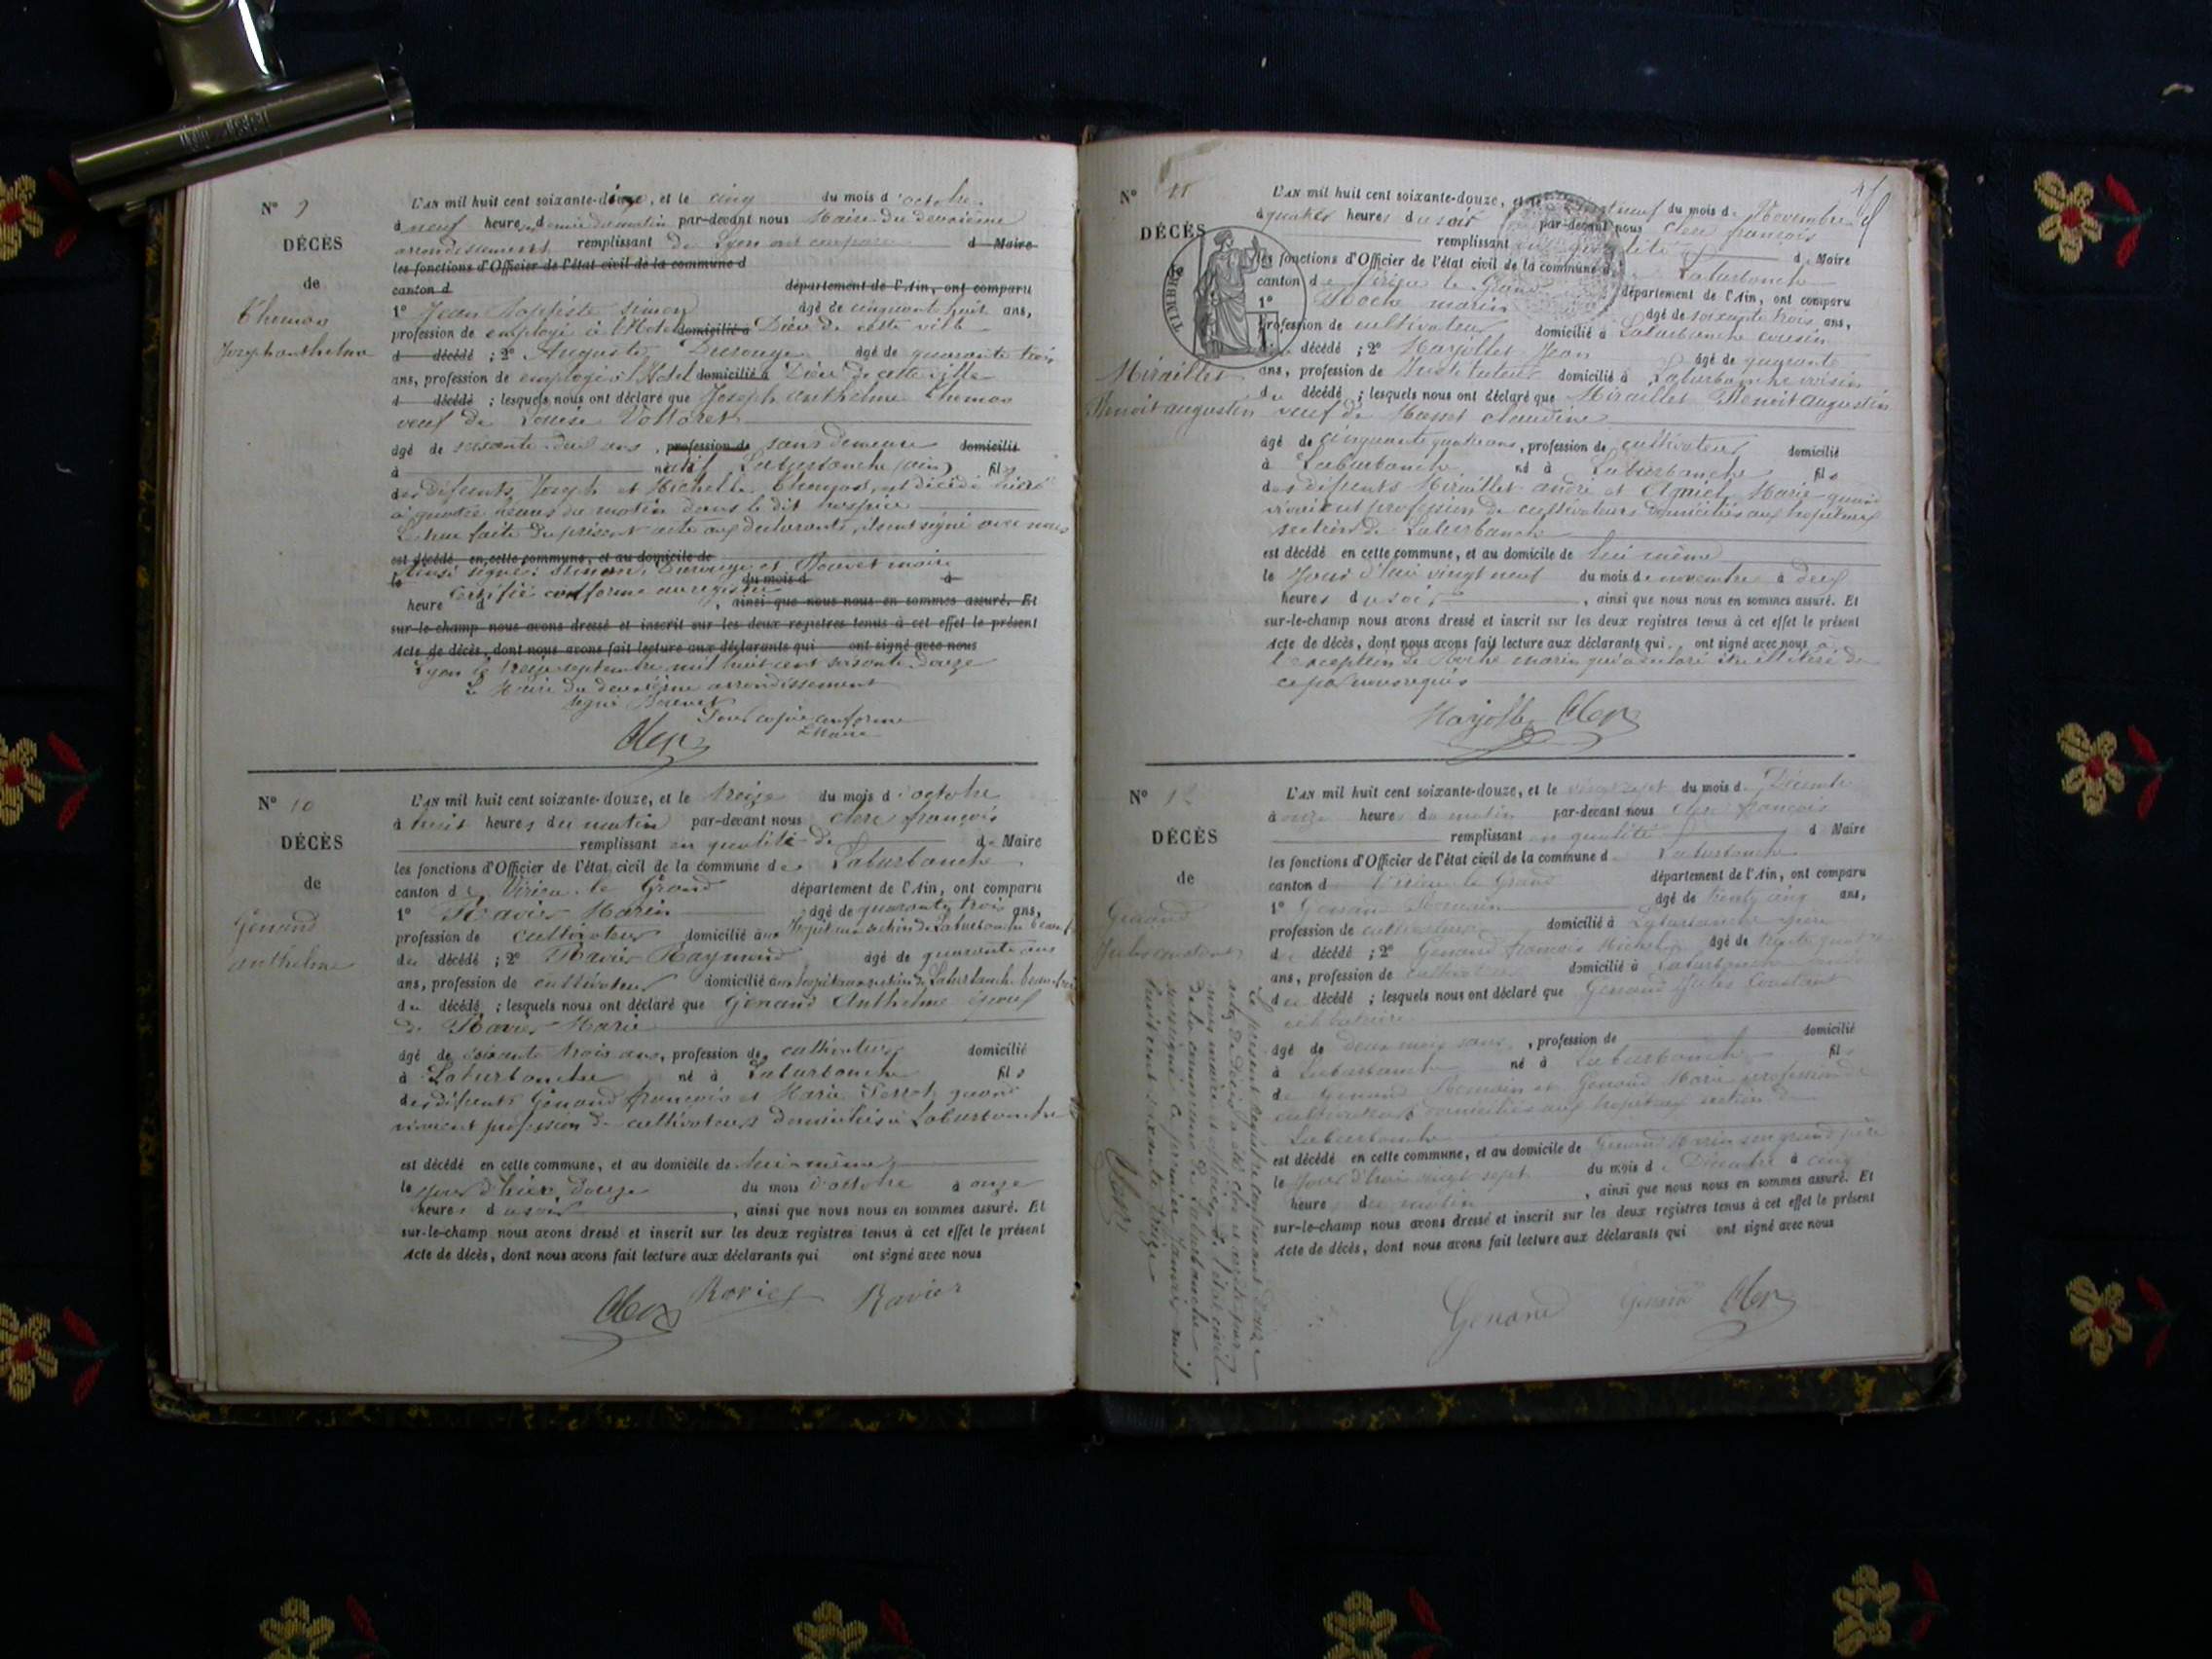 N° 9
DÉCÈS
de
Thomas
Joseph anthelme
L'AN mil huit cent soixante-douze, et le cinq du mois d'octobre
à neuf heures demie du matin par-devant nous Maire du deuxième
arrondissement remplissant de Lyon ont comparu d Maire
les fonctions d'Officier de l'état civil de la commune d
canton d département de l'Ain, ont comparu
1° Jean Baptiste Simon âgé de cinquante huit ans,
profession de employé à l'Hotel domicilié à Dieu de cette ville
d décédé ; 2° Auguste Durouge âgé de quarante trois
ans, profession de employé à l'Hotel domicilié à Dieu de cette ville
d décédé ; lesquels nous ont déclaré que Joseph anthelme Thomas
veuf de Louise Vottoret
âgé de soixante dix ans, profession de sans demeure domicilié
à natif Laburbanche (ain) fils
des défunts Joseph et Michelle Thomas, est décédé hier
à quatre heures du matin dans le dit hospice
Lecture faite du présent acte aux déclarants, ils ont signé avec nous
est décédé en cette commune, et au domicile de
ainsi signé: Simon, Durouge et Bouvet maire
le du mois d à
Certifié conforme au registre
heure d , ainsi que nous nous en sommes assuré. Et
sur-le-champ nous avons dressé et inscrit sur les deux registres tenus à cet effet le présent
Acte de décès, dont nous avons fait lecture aux déclarants qui ont signé avec nous
Lyon le treize septembre mil huit cent soixante douze
Le Maire du deuxième arrondissement
signé Bouvet
Pour copie conforme
L Maire
Clerc
N° 10
DÉCÈS
de
Genand
anthelme
L'AN mil huit cent soixante-douze, et le treize du mois d'octobre
à huit heures du matin par-devant nous Clerc françois
remplissant en qualité de de Maire
les fonctions d'Officier de l'état civil de la commune de Laburbanche
canton de Virieu le Grand département de l'Ain, ont comparu
1° Ravier Marin âgé de quarante trois ans,
profession de cultivateur domicilié aux hopitaux section de Laburbanche beau f
du décédé ; 2° Ravier Raymond âgé de quarante ans
ans, profession de cultivateur domicilié aux hopitaux section de Laburbanche beau frère
du décédé ; lesquels nous ont déclaré que Genand Anthelme époux
de Ravier Marie
âgé de soixante trois ans, profession de cultivateur domicilié
à Laburbanche né à Laburbanche fils
des défunts Genand françois et Marie Perrot quand
vivaient profession de cultivateurs domiciliés à Laburbanche
est décédé en cette commune, et au domicile de lui-même
le jour d'hier douze du mois d'octobre à onze
heures du soir , ainsi que nous nous en sommes assuré. Et
sur-le-champ nous avons dressé et inscrit sur les deux registres tenus à cet effet le présent
Acte de décès, dont nous avons fait lecture aux déclarants qui ont signé avec nous
Clerc Ravier Ravier
N° 11
DÉCÈS
TIMBRE
Miraillet
Benoit augustin
L'AN mil huit cent soixante-douze, et le vingt neuf du mois de Novembre
à quatre heures du soir par-devant nous Clerc françois
remplissant en qualité de Maire
les fonctions d'Officier de l'état civil de la commune de Laburbanche
canton de Virieu le Grand département de l'Ain, ont comparu
1° Roche marin âgé de soixante trois ans,
profession de cultivateur domicilié à Laburbanche cousin
du décédé ; 2° Marjollet Jean âgé de quarante
ans, profession de Instituteur domicilié à Laburbanche voisin
du décédé ; lesquels nous ont déclaré que Miraillet Benoit augustin
veuf de Masset claudine
âgé de cinquante quatre ans, profession de cultivateur domicilié
à Laburbanche né à Laburbanche fils
des défunts Miraillet andré et Marie quand
vivaient profession de cultivateurs domiciliés aux hopitaux
section de Laburbanche
est décédé en cette commune, et au domicile de lui même
le Jour d'hui vingt neuf du mois de novembre à deux
heures du soir , ainsi que nous nous en sommes assuré. Et
sur-le-champ nous avons dressé et inscrit sur les deux registres tenus à cet effet le présent
Acte de décès, dont nous avons fait lecture aux déclarants qui ont signé avec nous à
l'exception de Roche marin qui a déclaré être illétéré de
ce par nous requis
Marjollet Clerc
N° 12
DÉCÈS
de
Genand
Jules constant
L'AN mil huit cent soixante-douze, et le vingt sept du mois de Décembre
à onze heures du matin par-devant nous Clerc françois
remplissant en qualité d Maire
les fonctions d'Officier de l'état civil de la commune d Laburbanche
canton d Virieu le Grand département de l'Ain, ont comparu
1° Genand Romain âgé de trente cinq ans,
profession de cultivateur domicilié à Laburbanche père
du décédé ; 2° Genand françois Michel âgé de trente quatre
ans, profession de cultivateur domicilié à Laburbanche
du décédé ; lesquels nous ont déclaré que Genand Jules Constant
célibataire
âgé de deux mois sans , profession de domicilié
à Laburbanche né à Laburbanche fils
de Genand Romain et Genand Marie profession de
cultivateurs domiciliés aux hopitaux section de
Laburbanche
est décédé en cette commune, et au domicile de Genand Marin son grand père
le Jour d'hui vingt sept du mois de Décembre à cinq
heure du matin , ainsi que nous nous en sommes assuré. Et
sur-le-champ nous avons dressé et inscrit sur les deux registres tenus à cet effet le présent
Acte de décès, dont nous avons fait lecture aux déclarants qui ont signé avec nous
Genand Genand Clerc
Le présent registre contenant douze
actes de décès a été clos et arrêté par
nous maire et officier de l'état civil
de la commune de Laburbanche
soussigné ce premier Janvier mil
huit cent soixante treize
Clerc